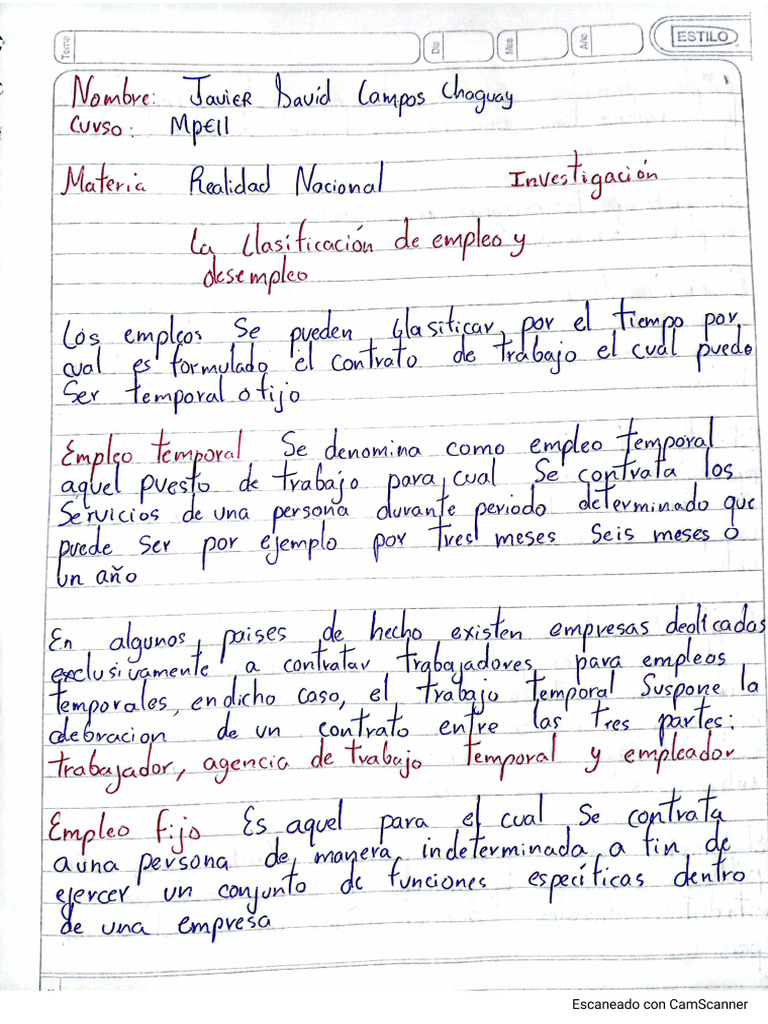 Tema
Día
Mes
Año
ESTILO
Nombre: Javier David Campos Chaguay
Curso: MpE11
Materia Realidad Nacional Investigación
La Clasificación de empleo y
desempleo
Los empleos Se pueden Clasificar, por el tiempo por
cual es formulado el contrato de trabajo el cual puede
Ser temporal o fijo
Empleo temporal Se denomina como empleo temporal
aquel puesto de trabajo para, cual Se contrata los
Servicios de una persona durante periodo determinado que
puede Ser por ejemplo por tres meses Seis meses o
un año
En algunos paises de hecho existen empresas dedicadas
exclusivamente a contratar trabajadores, para empleos
temporales, en dicho caso, el trabajo temporal Suspone la
celebracion de un contrato entre las tres partes:
trabajador, agencia de trabajo temporal y empleador
Empleo fijo Es aquel para el cual Se contrata
a una persona de, manera indeterminada a fin de
ejercer un conjunto de funciones específicas dentro
de una empresa
Escaneado con CamScanner